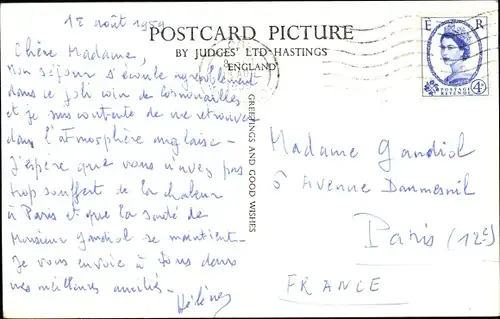 15 août 1959
POSTCARD PICTURE
BY JUDGES' LTD HASTINGS
ENGLAND
GREETINGS AND GOOD WISHES
E R
POSTAGE
REVENUE
4D
Chère Madame,
Mon séjour s'écoule agréablement
dans ce joli coin de Cornouailles
et je suis contente de me retrouver
dans l'atmosphère anglaise -
J'espère que vous n'avez pas
trop souffert de la chaleur
à Paris et que la santé de
Monsieur Gandiol se maintient -
Je vous envoie à tous deux
mes meilleures amitiés -
Hélène
Madame Gandiol
5 Avenue Daumesnil
Paris (12e)
FRANCE